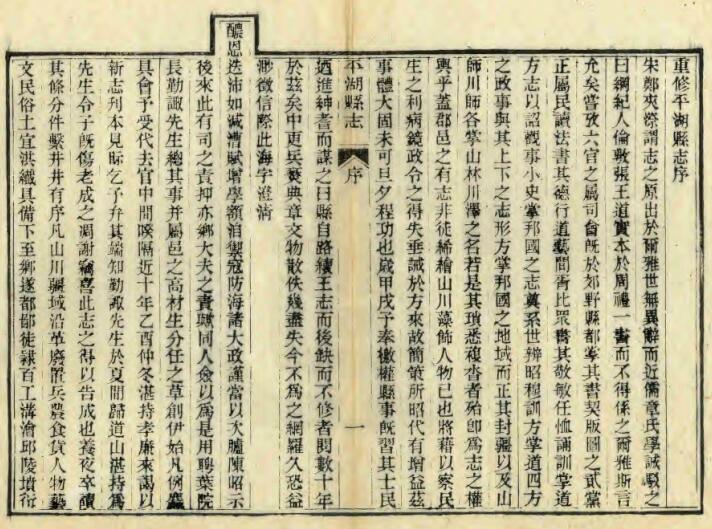 重修平湖縣志序
朱鄭夾漈謂志之原出於爾雅世無異辭而近儒章氏學誠駁之
曰綱紀人倫敦張王道實本於周禮一書而不得係之爾雅斯言
允矣嘗攷六官之屬司會既於郊野縣都掌其書契版圖之貳黨
正屬民讀法書其德行道藝閭胥比眾書其敬敏任恤誦訓掌道
方志以詔觀事小史掌邦國之志奠系世辨昭穆訓方掌道四方
之政事與其上下之志形方掌邦國之地域而正其封疆以及山
師川師各掌山林川澤之名若是其瑣悉複沓者殆即為志之權
輿乎蓋郡邑之有志非徒絺繪山川藻飾人物已也將藉以察民
生之利病鏡政令之得失垂誡於方來故簡策所昭代有增益茲
事體大固未可旦夕程功也歲甲戌予奉檄權縣事既習其士民
平湖縣志 序 一
迺進紳耆而謀之曰縣自路續王志而後缺而不修者閱數十年
於茲矣中更兵燹典章文物散佚幾盡失今不為之網羅久恐益
渺徵信際此海宇澄清
醲恩迭沛如減漕賦增學額洎禦寇防海諸大政謹當以次臚陳昭示
後來此有司之責抑亦鄉大夫之責歟同人僉以為是用聘葉院
長勤諏先生總其事并屬邑之高材生分任之草創伊始凡例麤
具會予受代去官中間暌隔近十年乙酉仲冬湛持孝廉來謁以
新志刊本見眎乞予弁其端知勤諏先生於夏間歸道山湛持為
先生令子既傷老成之凋謝竊喜此志之得以告成也養夜卒讀
其條分件繫井井有序凡山川疆域沿革廢置兵農食貨人物藝
文民俗土宜洪纖具備下至鄉遂都鄙徒隸百工溝澮邱陵墳衍